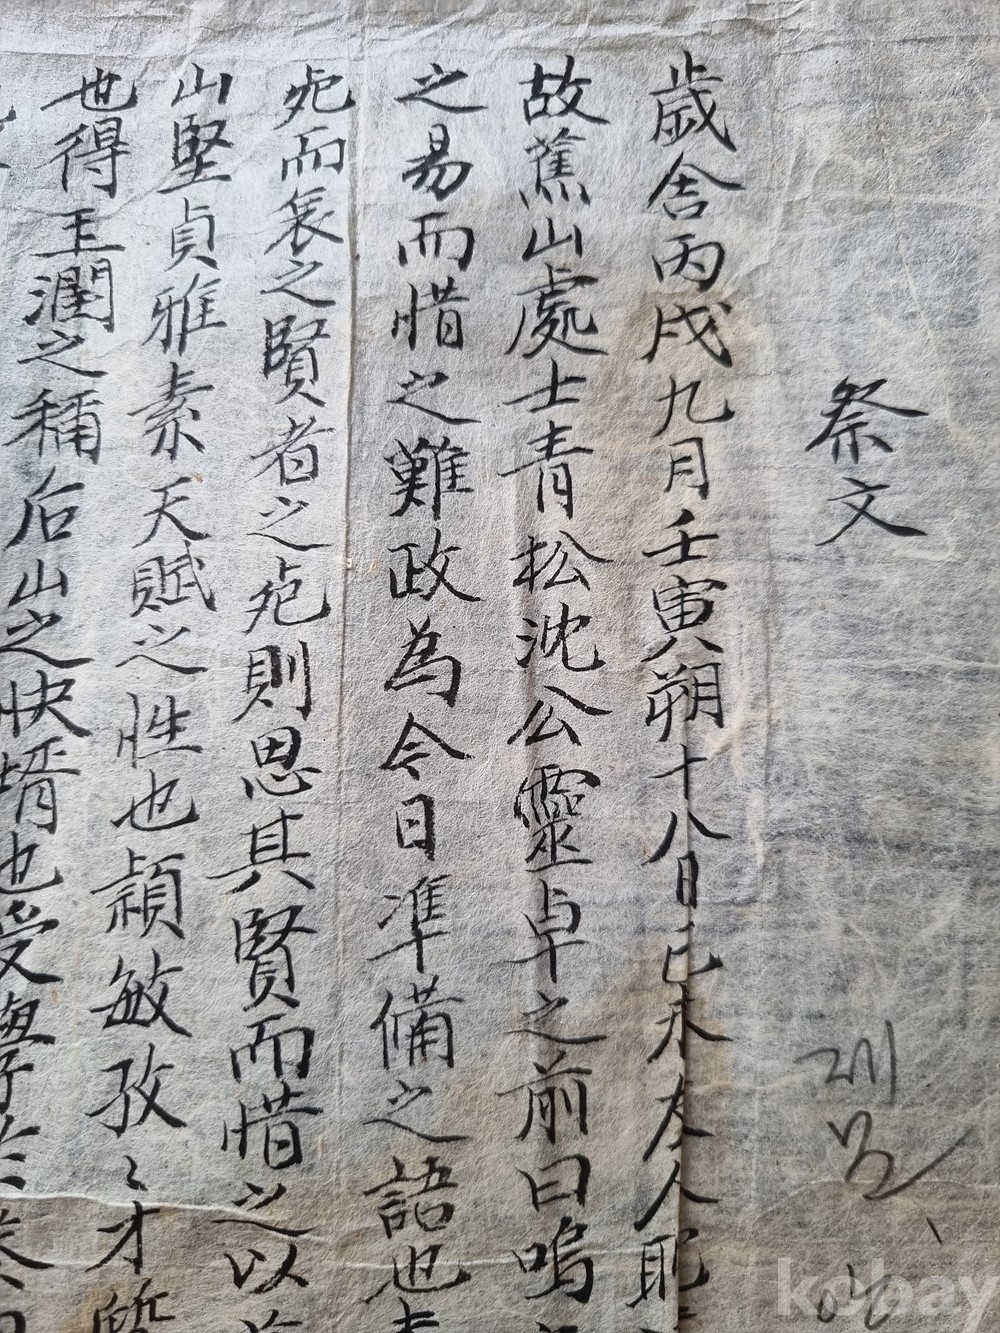 祭文
제문
歲舍丙戌九月壬寅朔十八日己未友人
故蕉山處士青松沈公靈卓之前曰嗚
之易而惜之難政為今日準備之語也
死而哀之賢者之死則思其賢而惜之以
山堅貞雅素天賦之性也穎敏孜〻才質
也得玉潤之稱后山之快壻也受
kobay